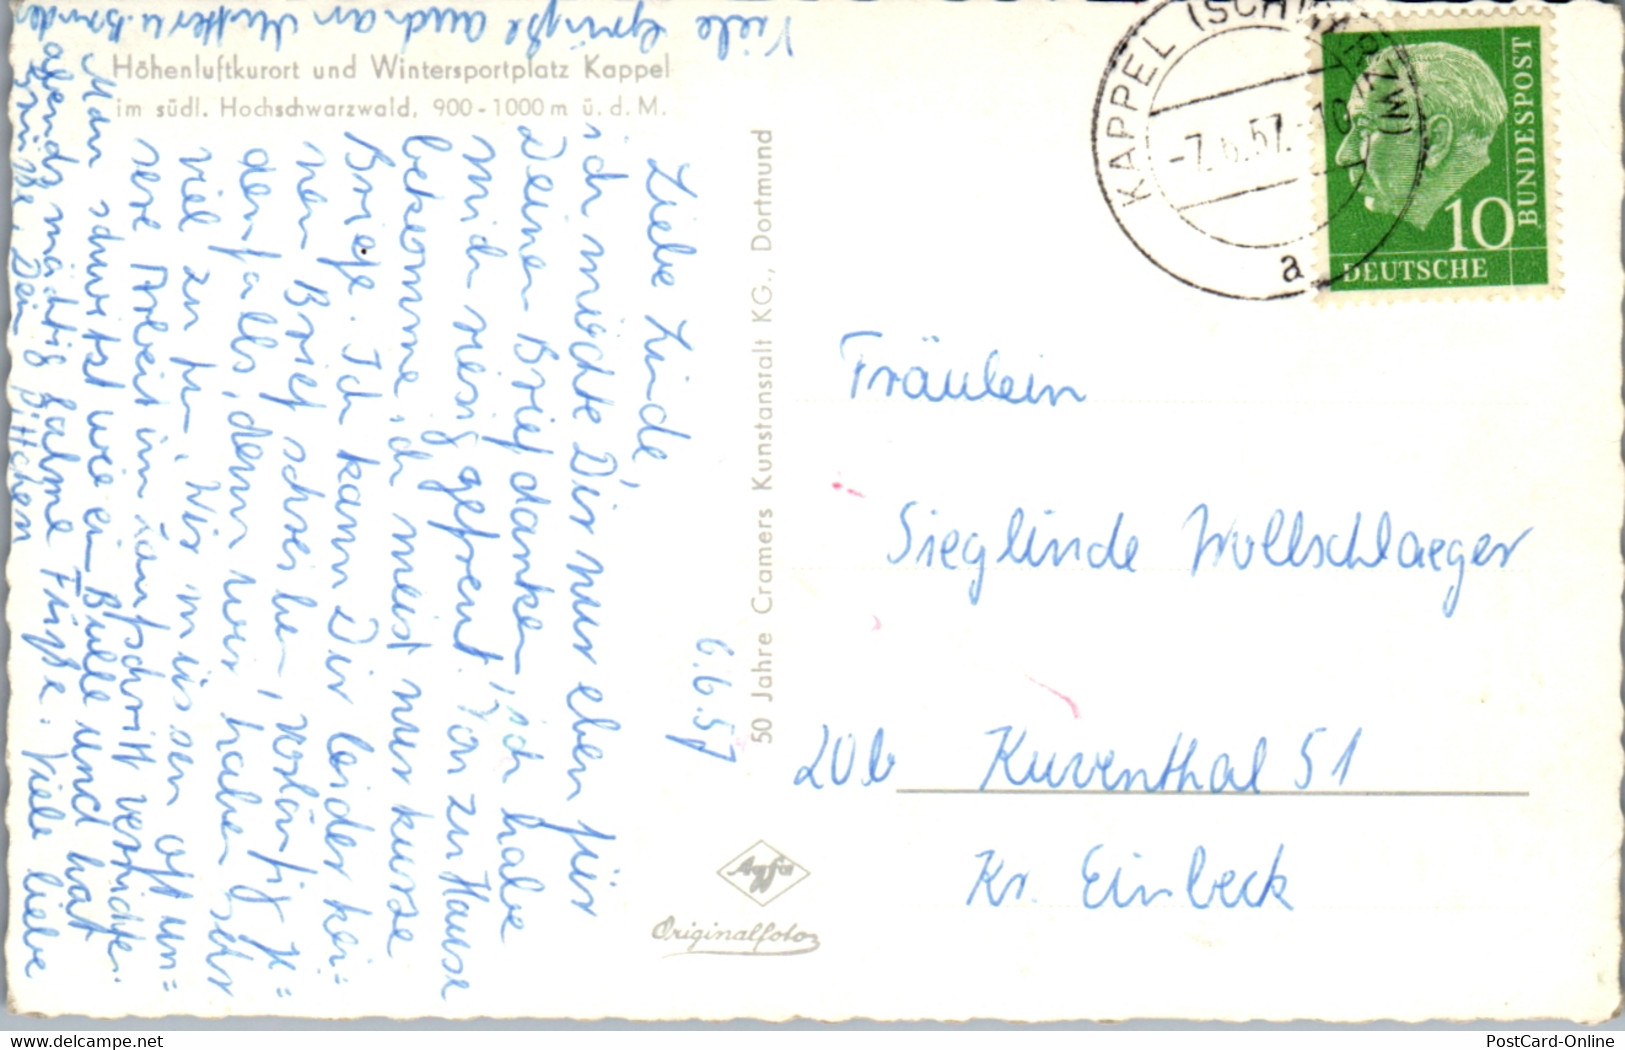 Viele Grüße auch an Mutter u. Bruder
Höhenluftkurort und Wintersportplatz Kappel
im südl. Hochschwarzwald, 900-1000 m ü. d. M.
6.6.57
Liebe Linde,
ich möchte Dir nur eben für
Deinen Brief danken, ich habe
mich riesig gefreut. Von zu Hause
bekomme ich meist nur kurze
Briefe. Ich kann Dir leider kei=
nen Brief schreiben, vorläufig je=
denfalls, denn wir haben sehr
viel zu tun. Wir müssen oft un=
sere Arbeit im Laufschritt verrichten.
Man schwitzt wie ein Bulle und hat
abends mächtig lahme Füße. Viele liebe
Grüße, Dein
50 Jahre Cramers Kunstanstalt KG., Dortmund
Agfa
Originalfoto
KAPPEL (SCHWARZW)
-7.6.57.-10
a
DEUTSCHE
BUNDESPOST
10
Fräulein
Sieglinde Wollschlaeger
20b Kuventhal 51
Kr. Einbeck
PostCard-Online